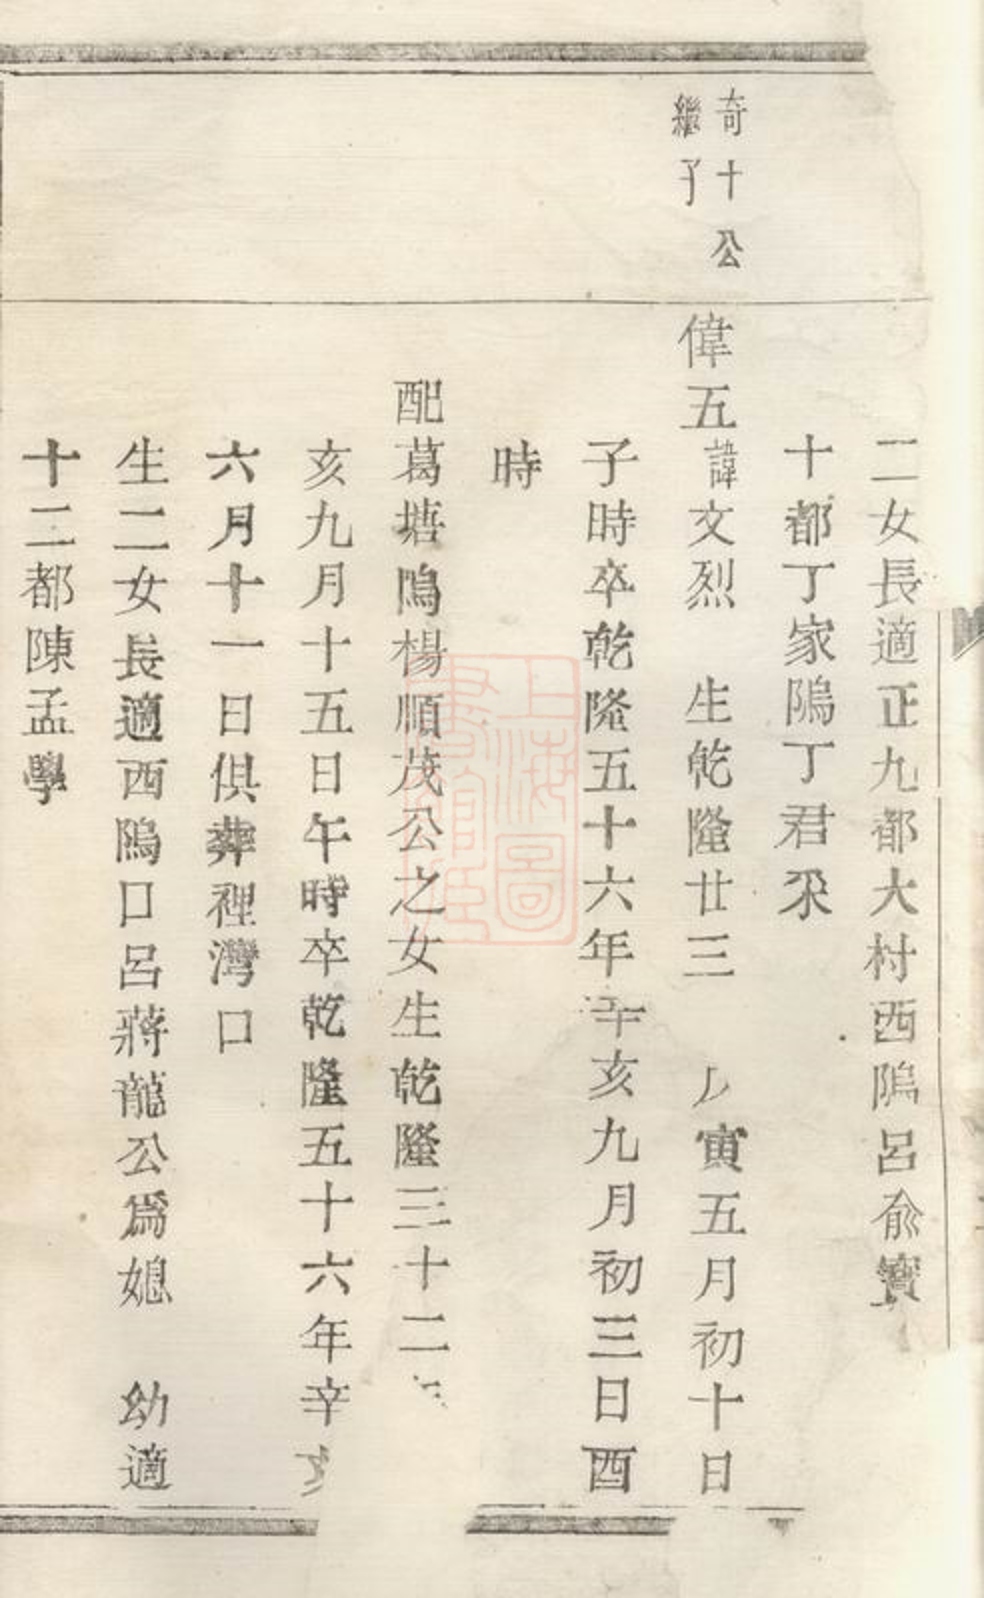 二女長適正九都大村西隖呂俞寶
十都丁家隖丁君
奇十公
繼子
偉五諱文烈 生乾隆廿三 寅五月初十日
子時卒乾隆五十六年辛亥九月初三日酉
時
配葛塘隖楊順茂公之女生乾隆三十二
亥九月十五日午時卒乾隆五十六年辛亥
六月十一日俱葬裡灣口
生二女長適西隖口呂蔣龍公爲媳 幼適
十二都陳孟學
上海圖
書館藏